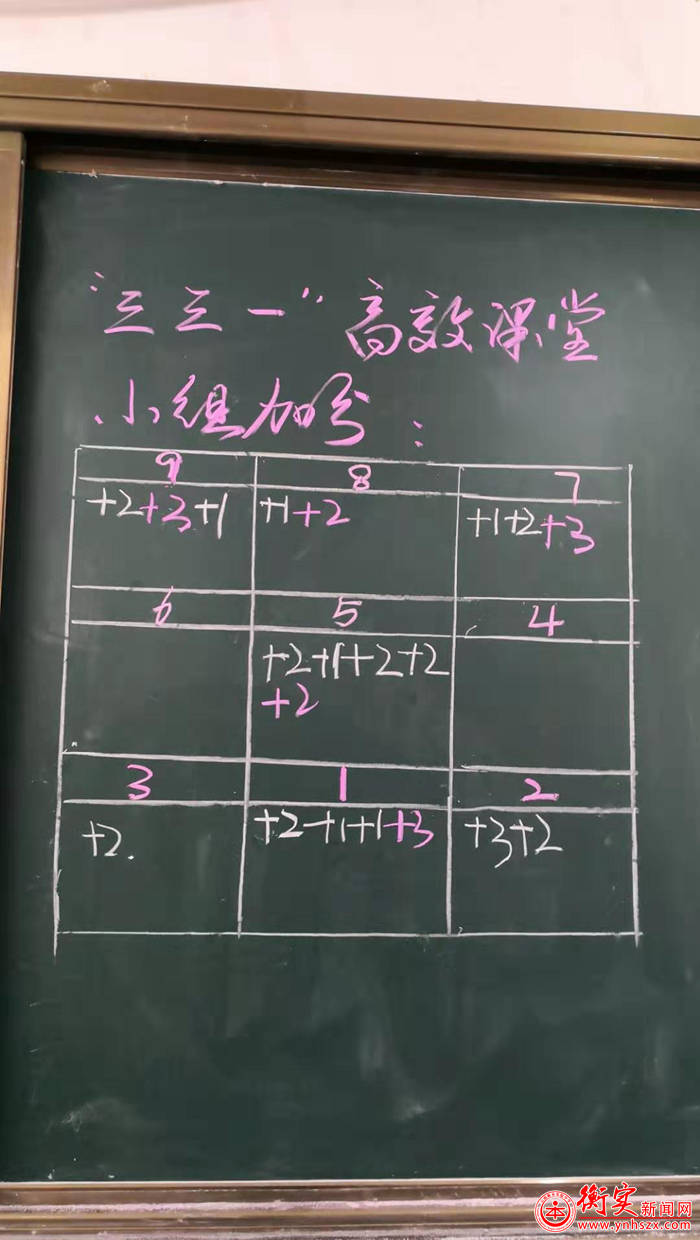 “三三一”高效课堂
小组加分：
9 8 7
+2+3+1 +1+2 +1+2+3
6 5 4
+2+1+2+2
+2
3 1 2
+2. +2+1+1+3 +3+2
衡实新闻网
www.ynhszx.com